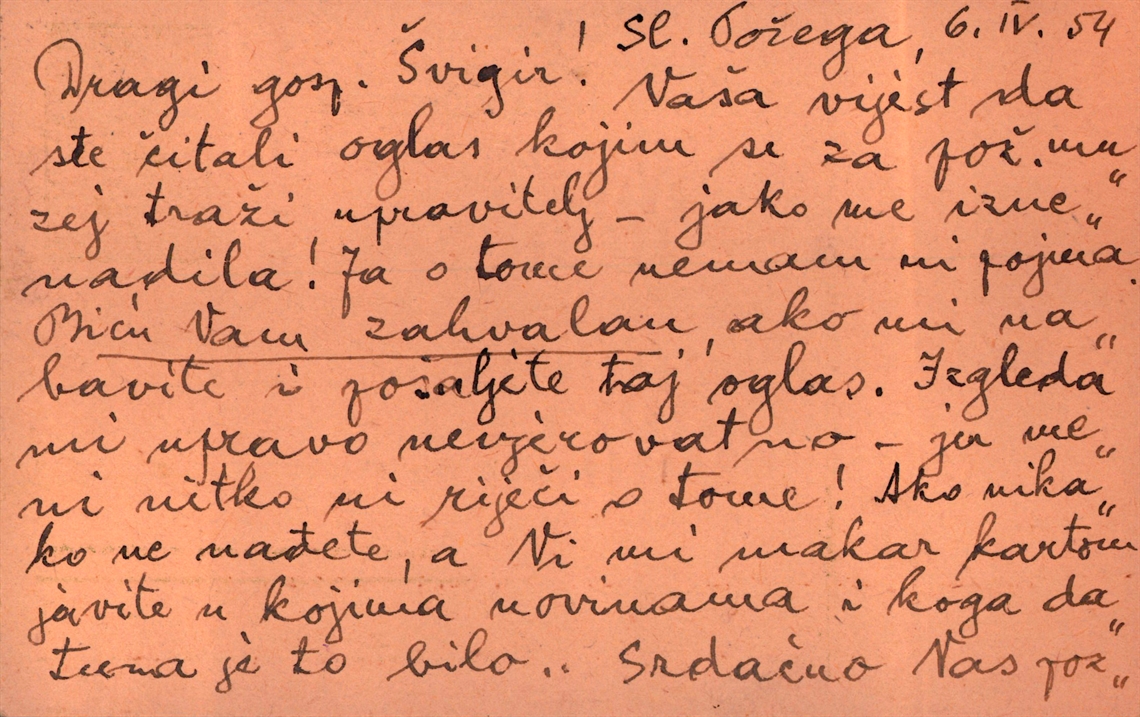 Sl. Požega, 6. IV. 54
Dragi gosp. Švigir! Vaša vijest da
ste čitali oglas kojim se za pož. mu„
zej traži upravitelj – jako me izne„
nadila! Ja o tome nemam ni pojma.
Biću Vam zahvalan, ako mi na„
bavite i pošaljete taj oglas. Izgleda„
mi upravo nevjerovatno – jer me„
ni nitko ni riječi o tome! Ako nika„
ko ne nađete, a Vi mi makar kartom
javite u kojima novinama i koga da„
tuma je to bilo.. Srdačno Vas poz„